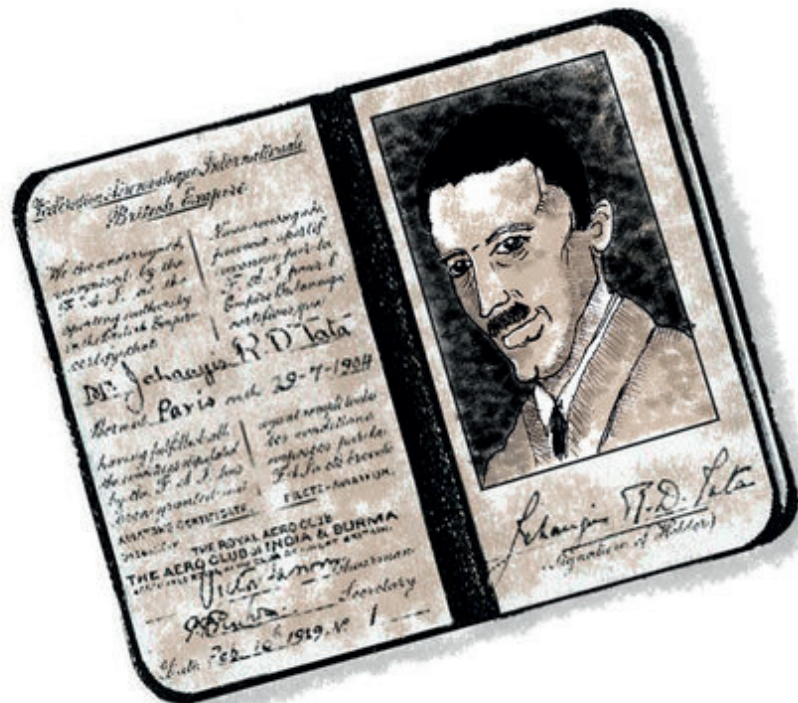 Federation Aeronautique Internationale
British Empire
We the undersigned
recognised by the
F.A.I. as the
sporting authority
in the British Empire
certify that
pouvoir sportif
reconnu par la
F.A.I. pour l'
Empire
certifions que
Mr. Jehangir R. D. Tata
Born at Paris on the 29-7-1904
having fulfilled all
the conditions stipulated
by the F.A.I. has
been granted an
AVIATOR'S CERTIFICATE
ayant rempli toutes
les conditions
imposées par la
F.A.I. a été breveté
PILOTE-AVIATEUR.
THE ROYAL AERO CLUB
THE AERO CLUB OF INDIA & BURMA
Victor Chairman
Secretary
Date Feb. 10th No 1
Jehangir R. D. Tata
(Signature of Holder)